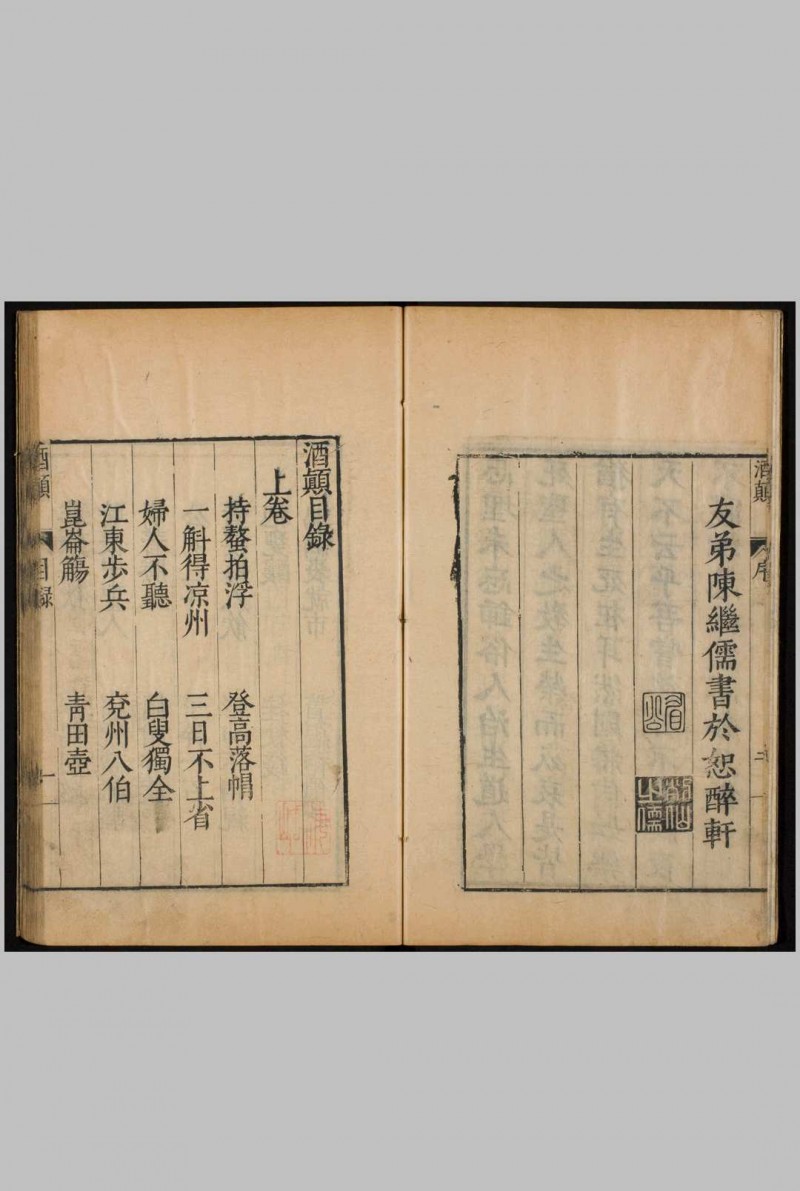 酒顛
序
二
友弟陳繼儒書於恕醉軒
酒顛目錄
上卷
持螯拍浮 登高落帽
一斛得凉州 三日不上省
婦人不聽 白叟獨全
江東步兵 兗州八伯
崑崙觴 青田壺
酒顛
目錄
一